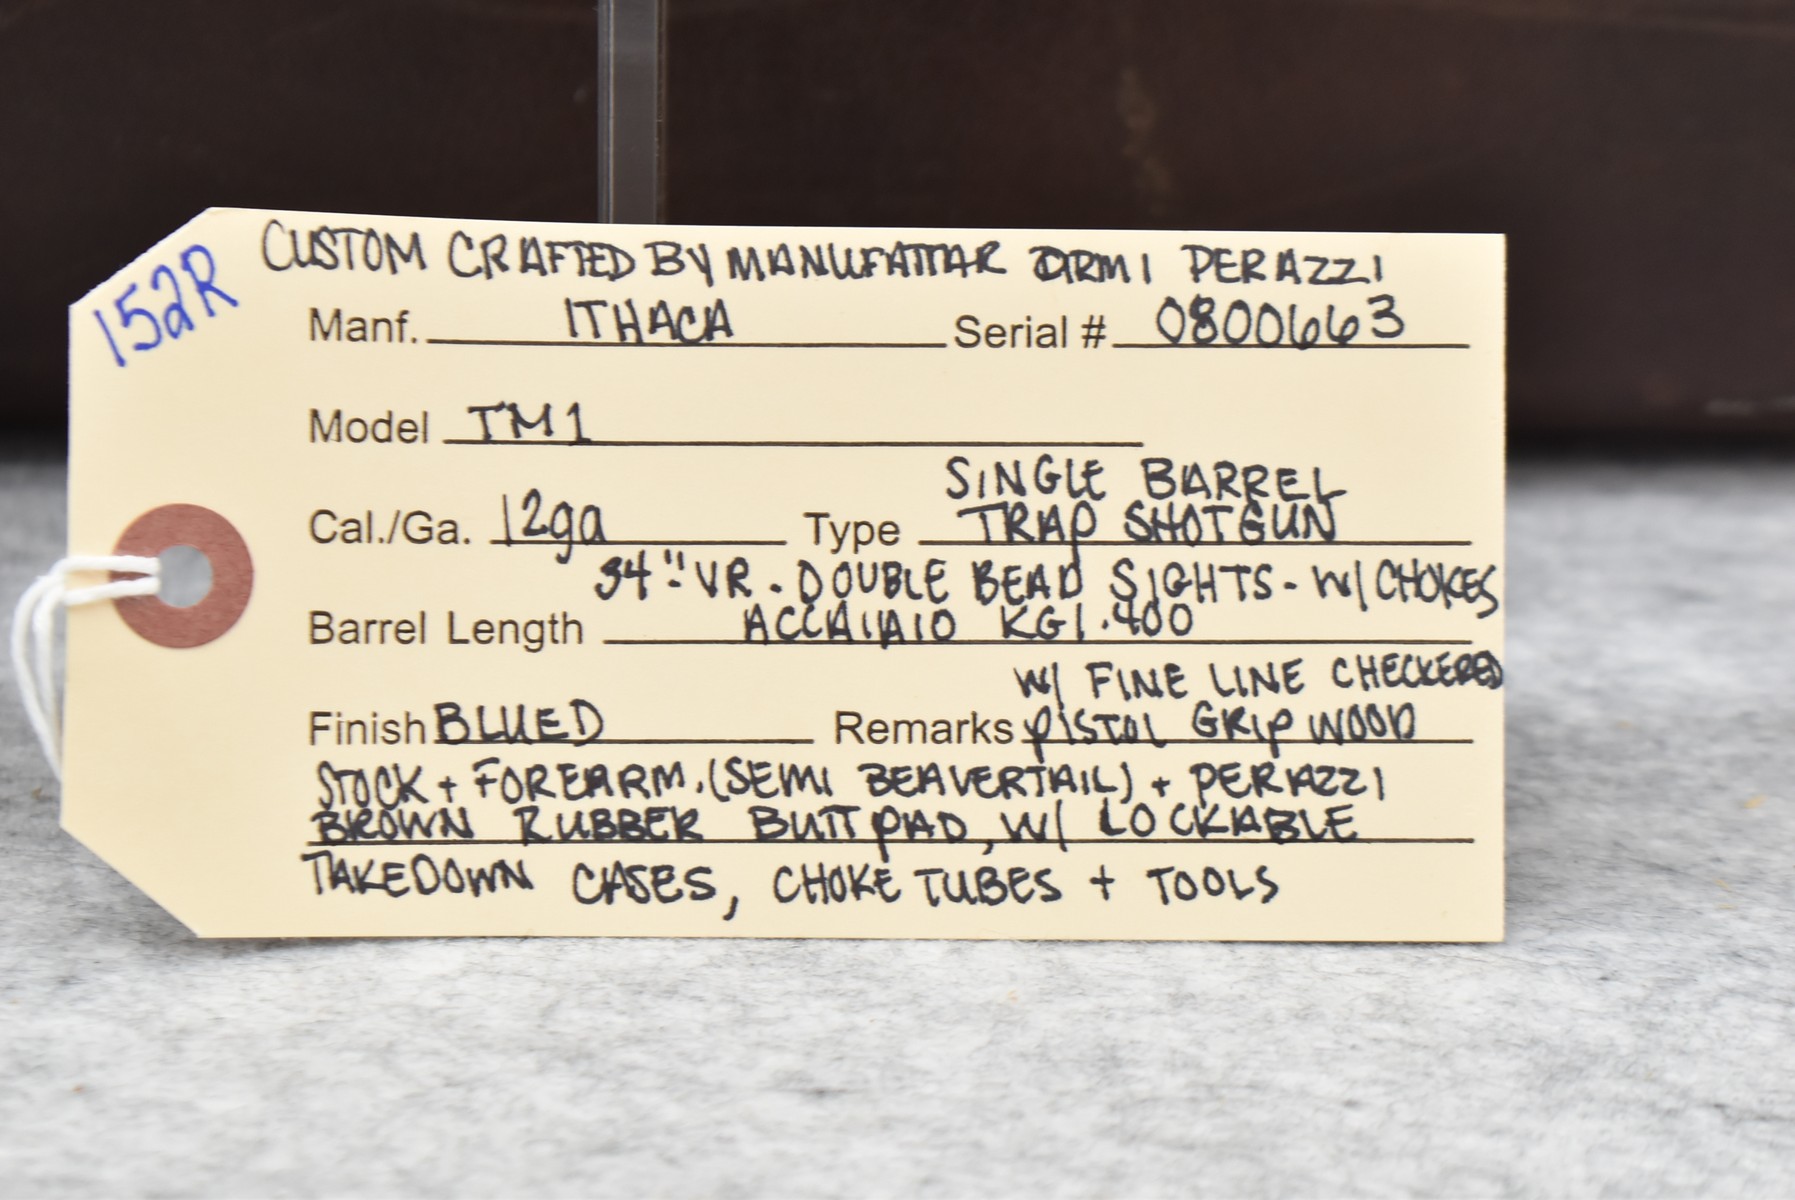 152R
CUSTOM CRAFTED BY MANUFATTAR ARMI PERAZZI
Manf. ITHACA Serial # 0800663
Model TM1
SINGLE BARREL
Cal./Ga. 12ga Type TRAP SHOTGUN
34" VR. DOUBLE BEAD SIGHTS - W/ CHOKES
Barrel Length ACCAIAIO KG1.400
W/ FINE LINE CHECKERED
Finish BLUED Remarks PISTOL GRIP WOOD
STOCK + FOREARM. (SEMI BEAVERTAIL) + PERAZZI
BROWN RUBBER BUTT PAD, W/ LOCKABLE
TAKEDOWN CASES, CHOKE TUBES + TOOLS